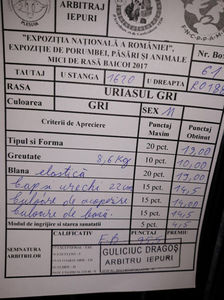 ARBITRAJ
IEPURI
"EXPOZIȚIA NAȚIONALĂ A ROMÂNIEI",
EXPOZIȚIE DE PORUMBEI, PĂSĂRI ȘI ANIMALE
MICI DE RASĂ BAICOI 2017
Nr. Box
TATUAJ U STANGA 1620 U DREAPTA RO186
RASA URIASUL GRI
Culoarea GRI SEX M
Criterii de Apreciere Punctaj Maxim Punctaj Obtinut
Tipul si Forma 20 pct. 19,00
Greutate 8,6 Kg 10 pct. 10,00
Blana elastică 20 pct. 19,00
cap și urechi 22cm 15 pct. 14,5
culoare de acoperire 15 pct. 14,5
culoare de bază 15 pct. 14,5
Modul de ingrijire si starea sanatatii 5 pct.
CALIFICATIV PREMII
SEMNATURA
ARBITRILOR
GULICIUC DRAGOȘ
ARBITRU IEPURI